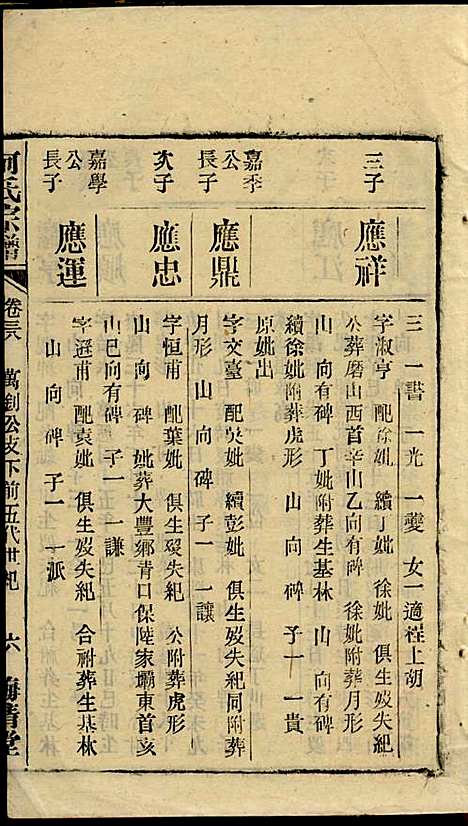 三 一書 一光 一夔 女一適程上胡
三子 應祥 字淑亨 配徐妣 續丁妣 徐妣 俱生歿失紀
公葬磨山西首辛山乙向有碑 徐妣附葬月形
山 向有碑 丁妣附葬生基林 山 向有碑
續徐妣附葬虎形 山 向 碑 子一 一貴
原妣出
嘉季公長子 應鼎 字文臺 配吳妣 續彭妣 俱生歿失紀同附葬
月形 山 向 碑 子一 一讓
次子 應忠 字恒甫 配葉妣 俱生歿失紀 公附葬虎形
山 向 碑 妣葬大豐鄉青口保陸家壩東首亥
山巳向有碑 子一 一謙
嘉學公長子 應運 字遜甫 配袁妣 俱生歿失紀 合祔葬生基林
山 向 碑 子一 一派
何氏宗譜 卷三 萬釗公支下前五代世紀 六